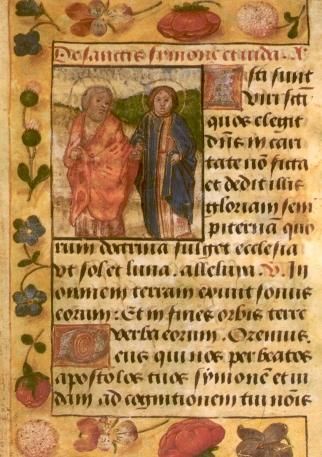 De sanctis symone et iuda. A͞
Isti sunt
viri sc̄ti
quos elegit
dn̄s in cari
tate nō ficta
et dedit illis
gloriam sem
piternā quo
rum doctrina fulget ecclesia
vt sol et luna. alleluia. V. In
omnem terram exiuit sonus
eorum: Et in fines orbis terre
verba eorum. Oremus.
Deus qui nos per beatos
apostolos tuos symonē et iu
dam ad cognitionem tui nōis